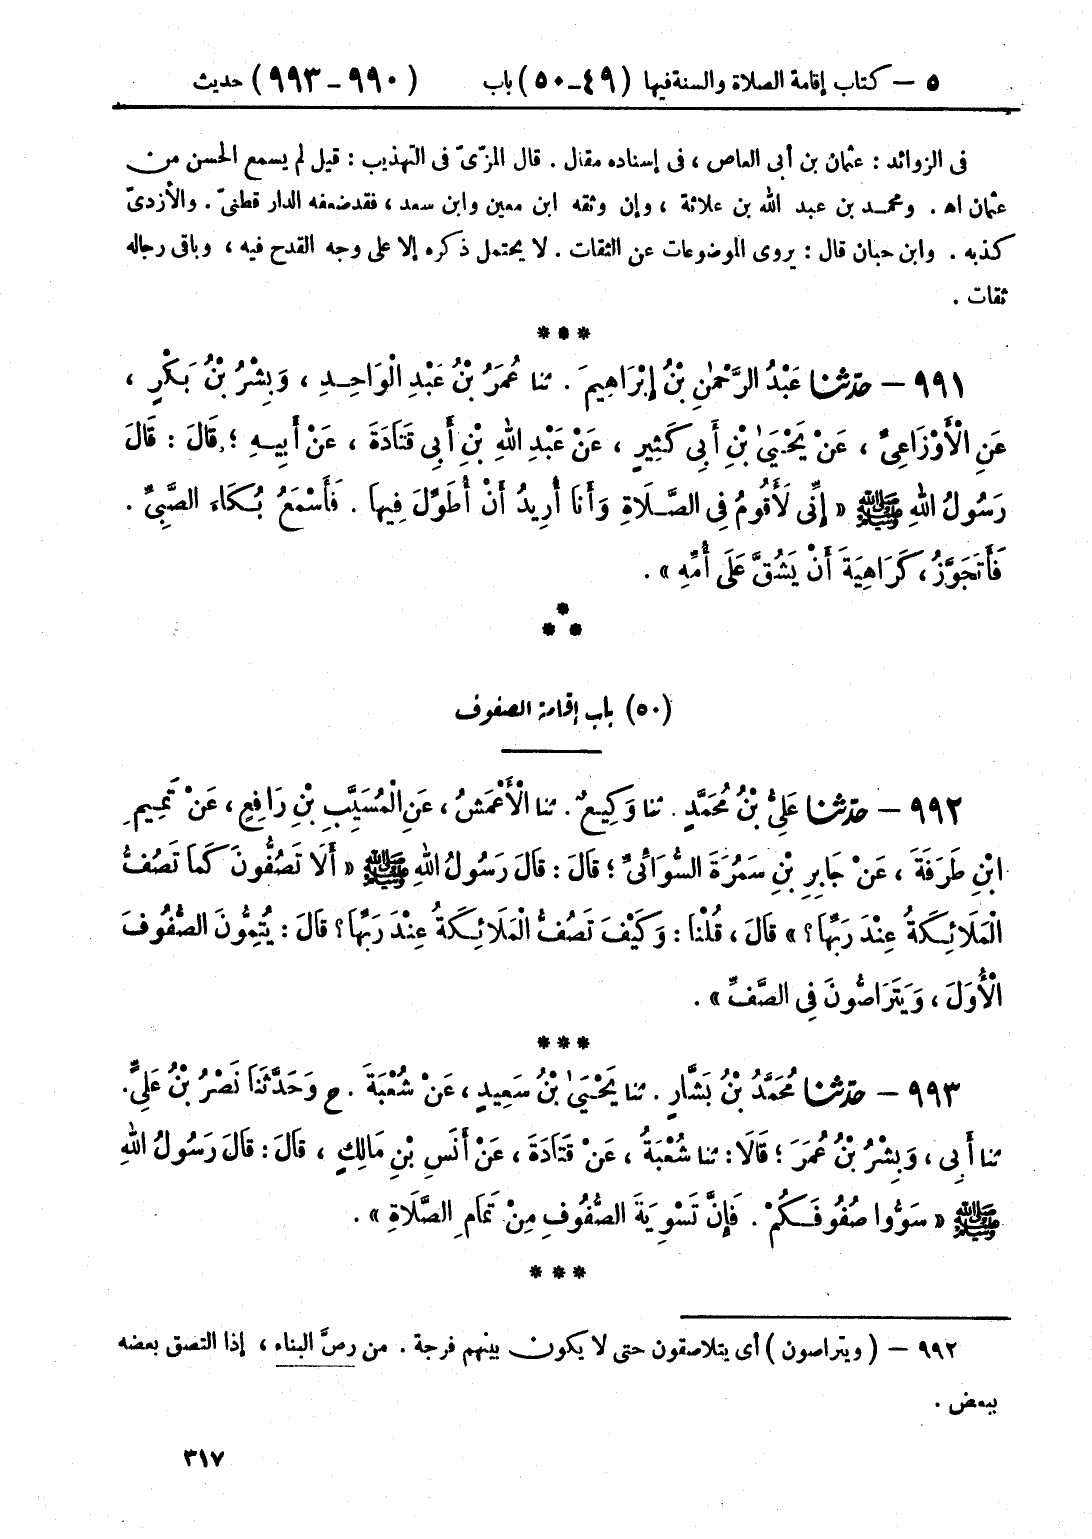 ٥ – كتاب إقامة الصلاة والسنة فيها (٤٩-٥٠) باب (٩٩٠-٩٩٣) حديث
فى الزوائد : عثمان بن أبى العاص ، فى إسناده مقال . قال المزّىّ فى التهذيب : قيل لم يسمع الحسن من
عثمان اه . ومحمد بن عبد الله بن علاثة ، وإن وثقه ابن معين وابن سعد ، فقد ضعفه الدار قطنىّ . والأزدىّ
كذبه . وابن حبان قال : يروى الموضوعات عن الثقات . لا يحتمل ذكره إلا على وجه القدح فيه ، وباقى رجاله
ثقات .
***
٩٩١ – حدّثنا عَبْدُ الرَّحْمٰنِ بْنُ إِبْرَاهِيمَ . ثنا عُمَرُ بْنُ عَبْدِ الْوَاحِدِ ، وَبِشْرُ بْنُ بَكْرٍ ،
عَنِ الْأَوْزَاعِىِّ ، عَنْ يَحْيَىٰ بْنِ أَبِى كَثِيرٍ ، عَنْ عَبْدِ اللهِ بْنِ أَبِى قَتَادَةَ ، عَنْ أَبِيهِ ؛ قَالَ : قَالَ
رَسُولُ اللهِ ﷺ « إِنِّى لَأَقُومُ فِى الصَّلَاةِ وَأَنَا أُرِيدُ أَنْ أُطَوِّلَ فِيهَا . فَأَسْمَعُ بُكَاءَ الصَّبِىِّ .
فَأَتَجَوَّزُ ، كَرَاهِيَةَ أَنْ يَشُقَّ عَلَى أُمِّهِ » .
*
* *
(٥٠) باب إقامة الصفوف
٩٩٢ – حدّثنا عَلِىُّ بْنُ مُحَمَّدٍ . ثنا وَكِيعٌ . ثنا الْأَعْمَشُ ، عَنِ الْمُسَيَّبِ بْنِ رَافِعٍ ، عَنْ تَمِيمِ
ابْنِ طَرَفَةَ ، عَنْ جَابِرِ بْنِ سَمُرَةَ السُّوَائِىِّ ؛ قَالَ : قَالَ رَسُولُ اللهِ ﷺ « أَلَا تَصُفُّونَ كَمَا تَصُفُّ
الْمَلَائِكَةُ عِنْدَ رَبِّهَا ؟ » قَالَ ، قُلْنَا : وَكَيْفَ تَصُفُّ الْمَلَائِكَةُ عِنْدَ رَبِّهَا ؟ قَالَ : يُتِمُّونَ الصُّفُوفَ
الْأُوَلَ ، وَيَتَرَاصُّونَ فِى الصَّفِّ » .
***
٩٩٣ – حدّثنا مُحَمَّدُ بْنُ بَشَّارٍ . ثنا يَحْيَىٰ بْنُ سَعِيدٍ ، عَنْ شُعْبَةَ . ح وَحَدَّثَنَا نَصْرُ بْنُ عَلِىٍّ .
ثنا أَبِى ، وَبِشْرُ بْنُ عُمَرَ ؛ قَالَا : ثنا شُعْبَةُ ، عَنْ قَتَادَةَ ، عَنْ أَنَسِ بْنِ مَالِكٍ ، قَالَ : قَالَ رَسُولُ اللهِ
ﷺ « سَوُّوا صُفُوفَكُمْ . فَإِنَّ تَسْوِيَةَ الصُّفُوفِ مِنْ تَمَامِ الصَّلَاةِ » .
***
٩٩٢ – (ويتراصون) أى يتلاصقون حتى لا يكون بينهم فرجة . من رصَّ البناء ، إذا التصق بعضه
ببعض .
٣١٧